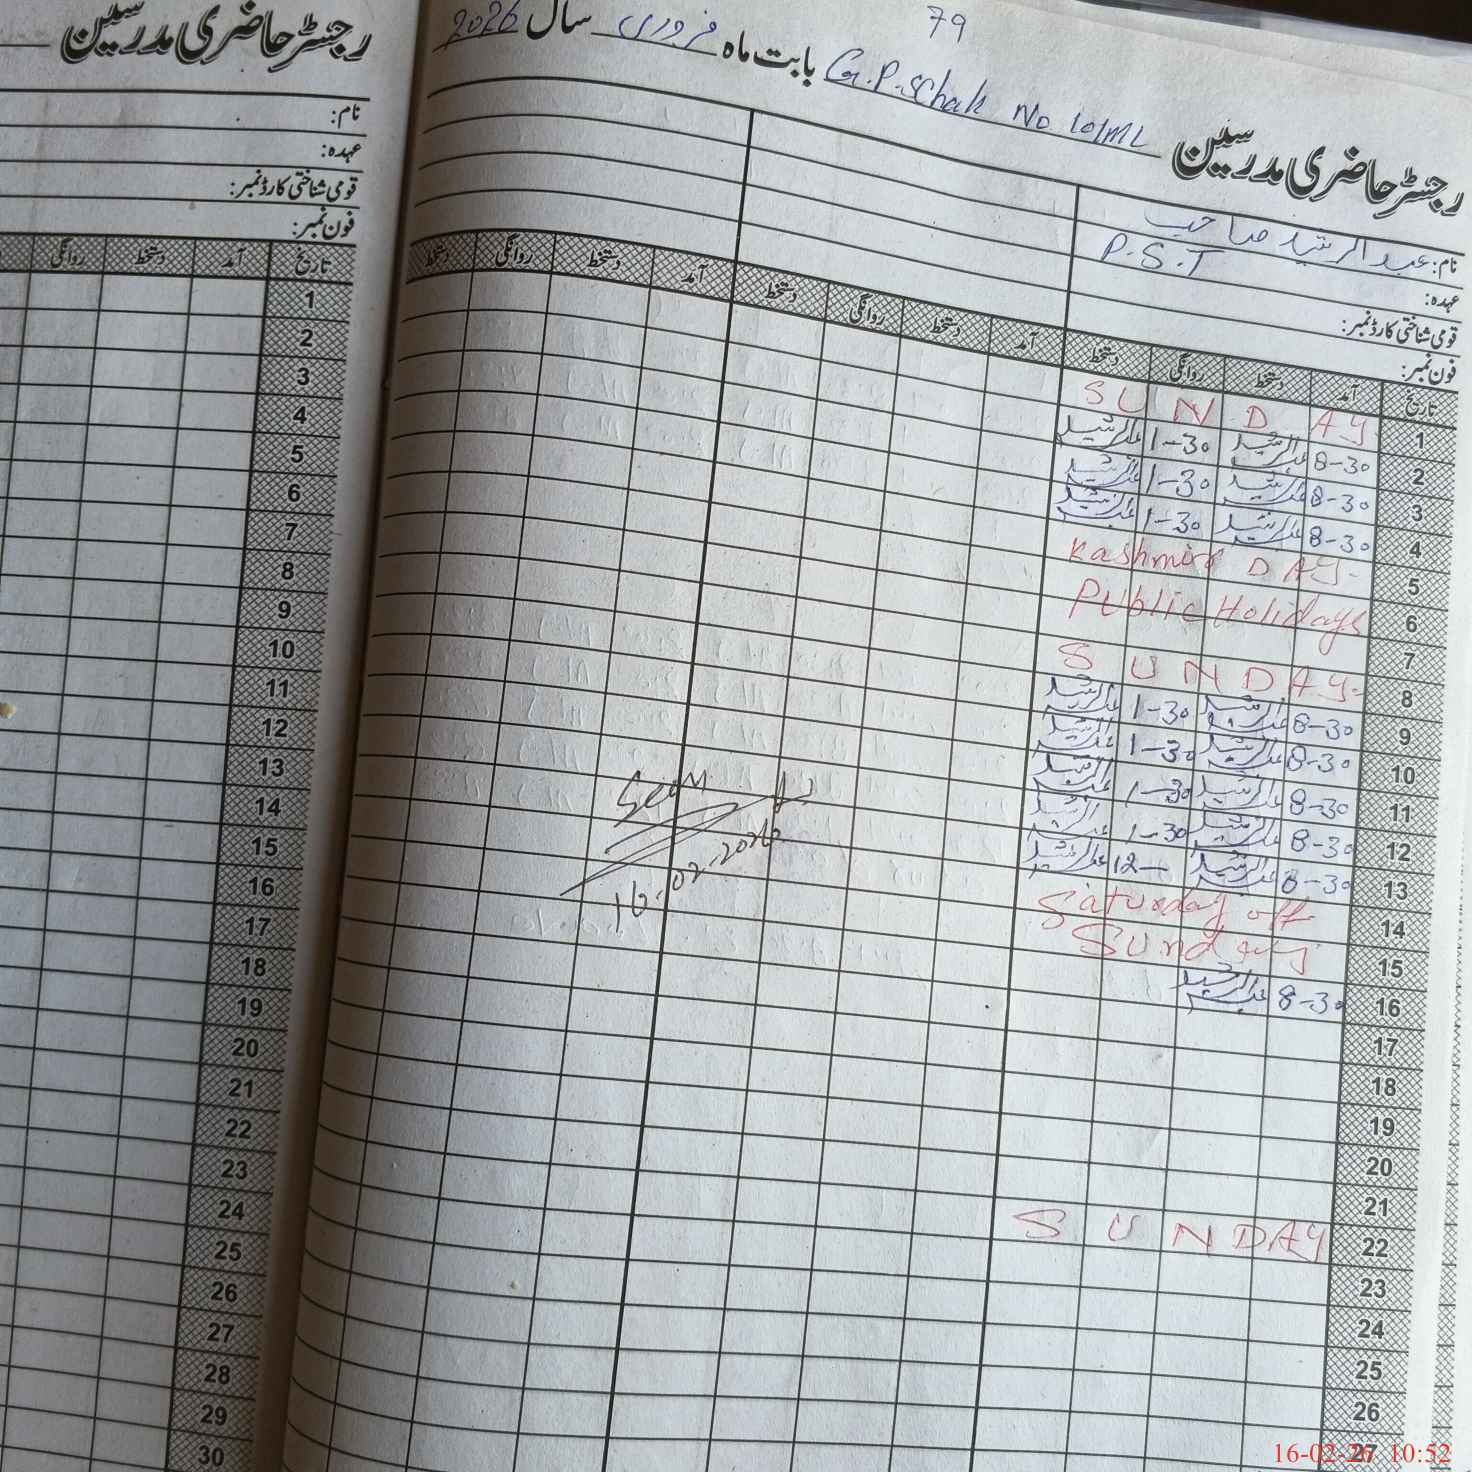 79
رجسٹر حاضری مدرسین G.P.S Chak No 101ML بابت ماہ فروری سال 2026
نام: عبدالرشید صاحب
عہدہ: P.S.T
قومی شناختی کارڈ نمبر:
فون نمبر:
تاریخ آمد دستخط روانگی دستخط آمد دستخط روانگی دستخط آمد دستخط روانگی دستخط
1 SUNDAY
2 8-30 عبدالرشید 1-30 عبدالرشید
3 8-30 عبدالرشید 1-30 عبدالرشید
4 8-30 عبدالرشید 1-30 عبدالرشید
5 Kashmir DAY-
6 Public Holidays
7
8 SUNDAY-
9 8-30 عبدالرشید 1-30 عبدالرشید
10 8-30 عبدالرشید 1-30 عبدالرشید
11 8-30 عبدالرشید 1-30 عبدالرشید
12 8-30 عبدالرشید 1-30 عبدالرشید
13 8-30 عبدالرشید 12- عبدالرشید
14 Saturday off
15 Sunday
16 8-30 عبدالرشید
17
18
19
20
21
22 SUNDAY
23
24
25
26
27
Seen
16-02-2026
رجسٹر حاضری مدرسین
نام:
عہدہ:
قومی شناختی کارڈ نمبر:
فون نمبر:
تاریخ آمد دستخط روانگی
1
2
3
4
5
6
7
8
9
10
11
12
13
14
15
16
17
18
19
20
21
22
23
24
25
26
27
28
29
30
16-02-26 10:52